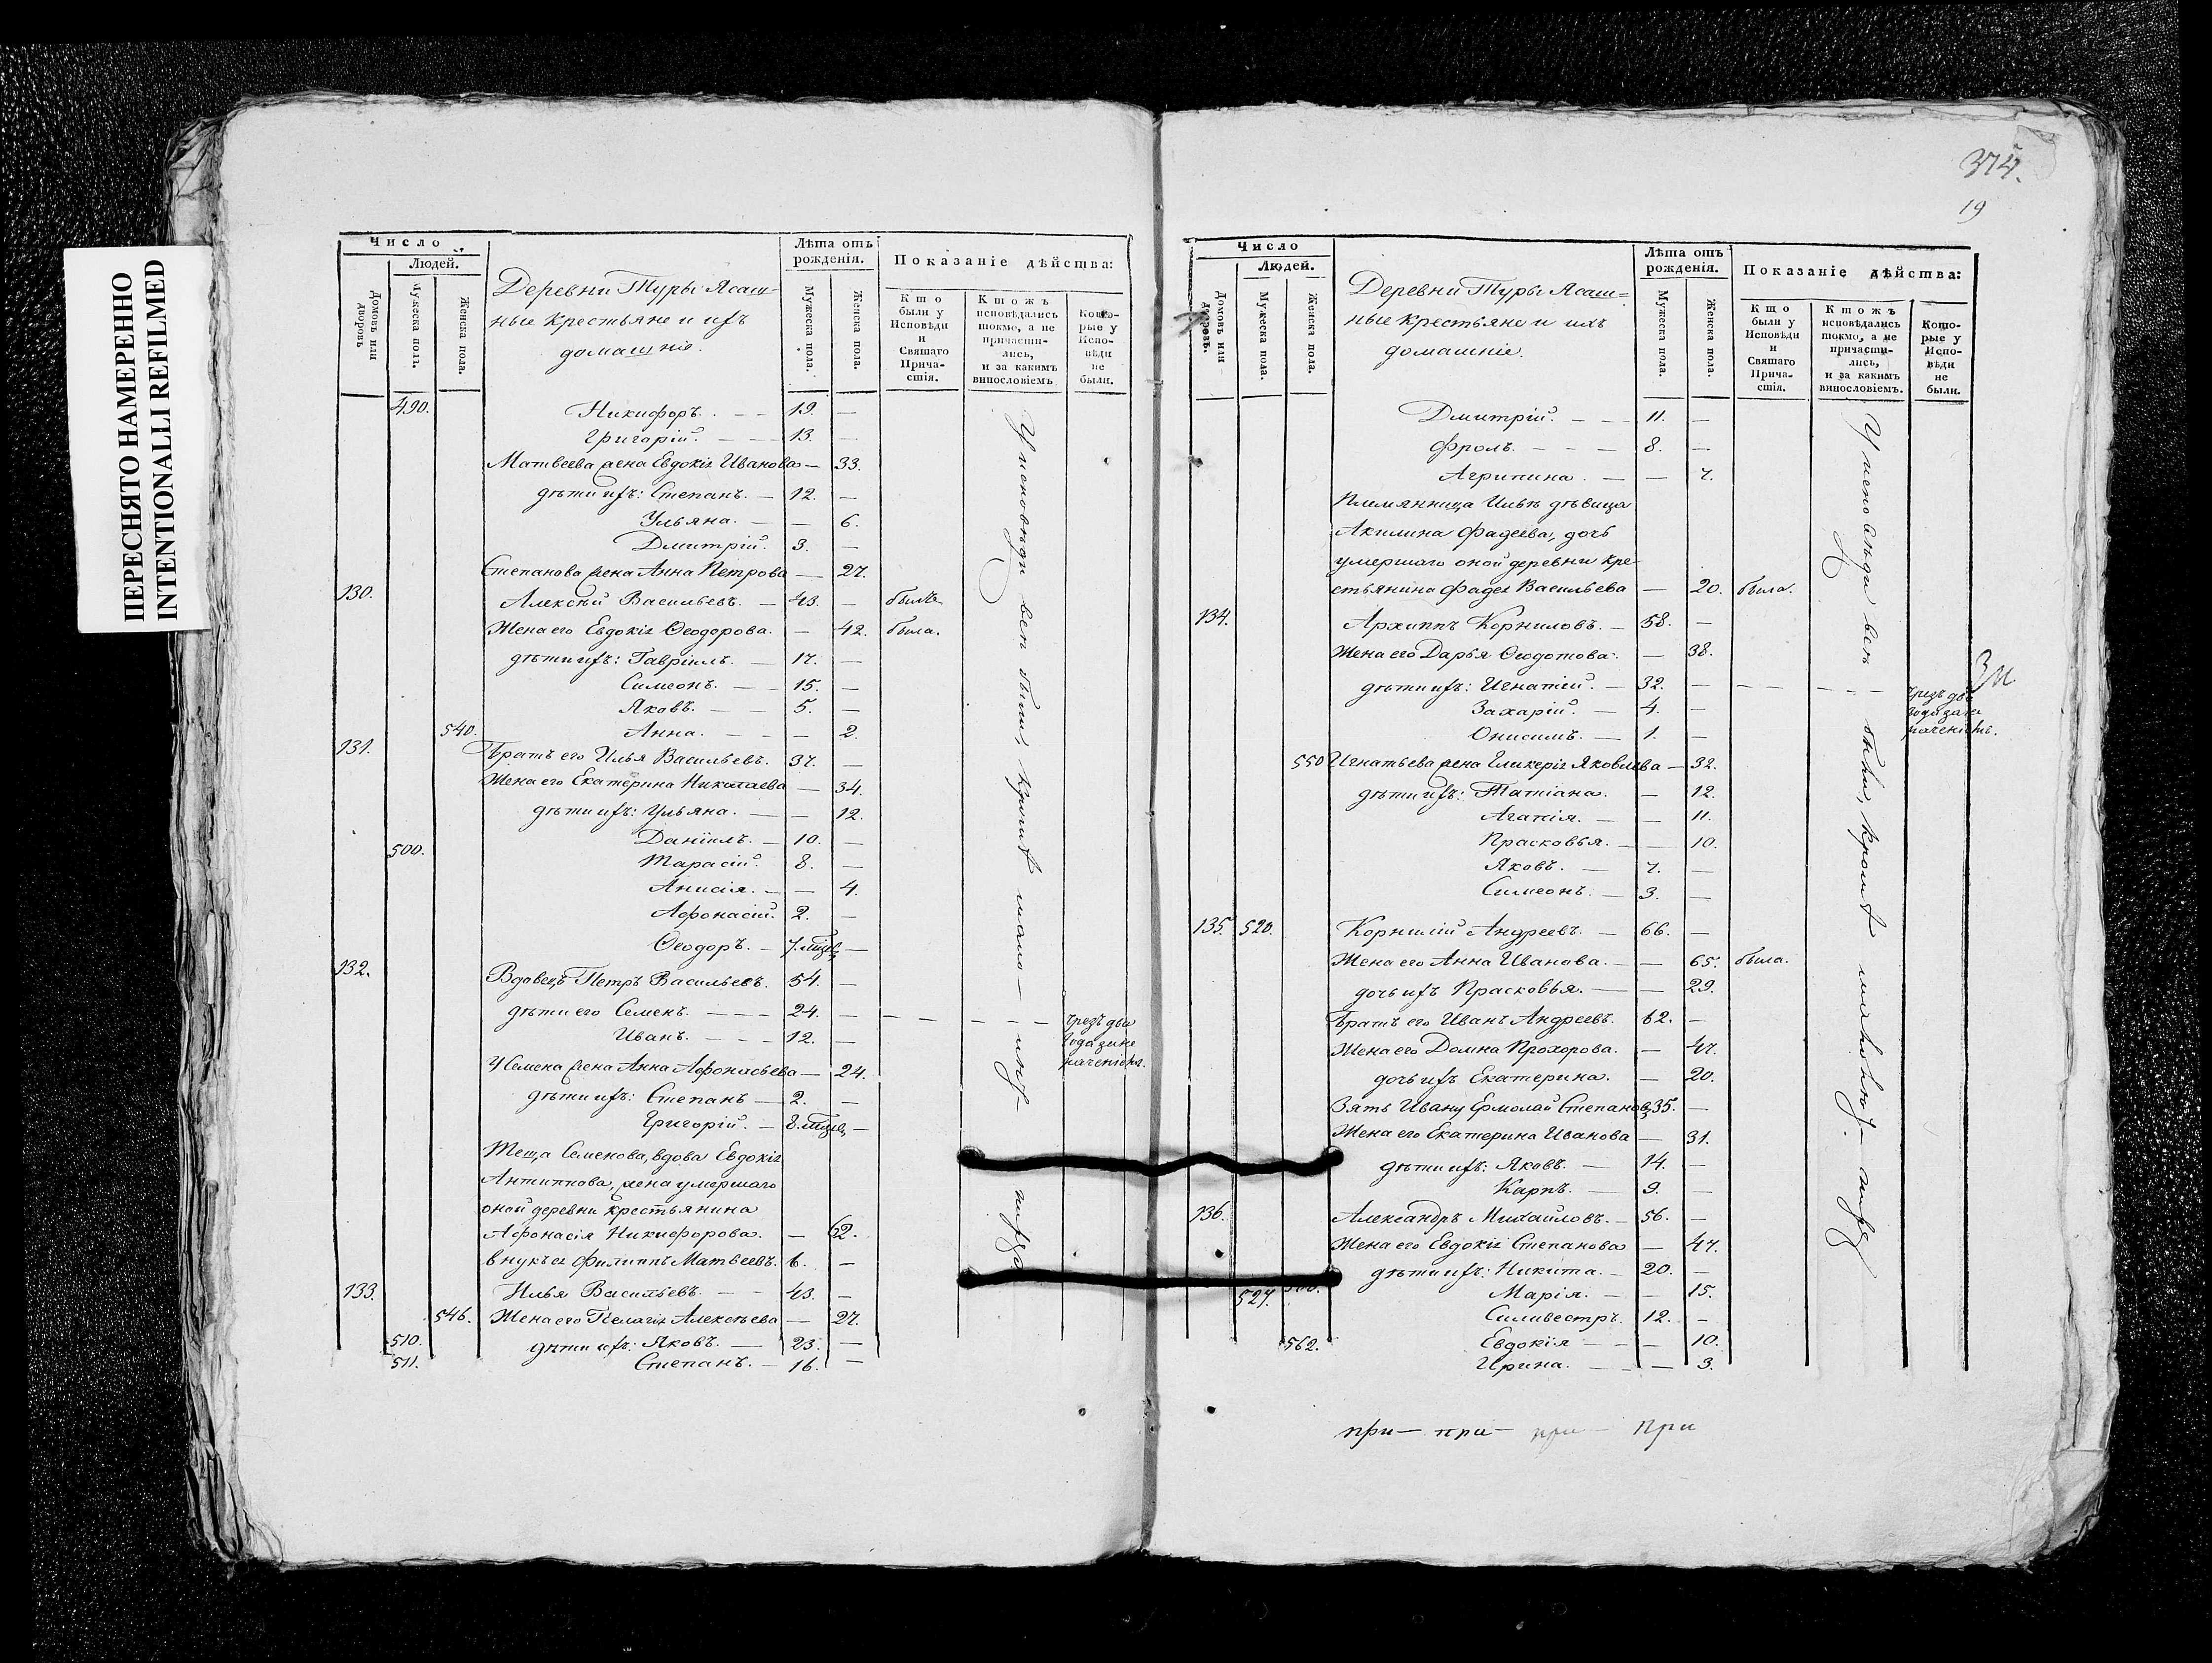 ПЕРЕСНЯТО НАМЕРЕННО
INTENTIONALLI REFILMED
Число
Людей.
Домовъ или дворовъ
Мужеска полъ.
Женска пола.
Деревни Туры Ясаш-
ные крестьяне и ихъ
домашніе.
Лѣта отъ
рожденія.
Мужеска пола.
Женска пола.
Показаніе дѣйства:
Кто
были у
Исповѣди
и
Святаго
Прича-
стія.
Ктожъ
исповѣдались
токмо, а не
причасти-
лись,
и за какимъ
винословіемъ
Кото-
рые у
Испо-
вѣди
не
были.
490. Никифоръ. — 19. —
Григорій. — 13. —
Матвеева жена Евдокія Иванова — 33.
дѣти ихъ: Степанъ. — 12. —
Ульяна. — — 6.
Дмитрій. 3. —
Степанова жена Анна Петрова — 27.
130. Алексѣй Васильевъ. — 43. —
Жена его Евдокія Ѳеодорова. — 42. была.
дѣти ихъ: Гавріилъ. — 17. —
Симеонъ. — 15. —
Яковъ. — 5. —
540. Анна. — — 2.
131. Братъ его Илья Васильевъ. 37. —
Жена его Екатерина Николаева — 34.
дѣти ихъ: Ульяна. — — 12.
Даніилъ. — 10. —
500. Тарасій. 8. —
Анисія. — — 4.
Афонасій. 2. —
Ѳеодоръ. — 7. —
132. Вдовецъ Петръ Васильевъ. 54. —
дѣти его Семенъ. — 24. — чрезъ два
года за не
Иванъ. — 12. —
У Семена жена Анна Афонасьева — 24.
дѣти ихъ: Степанъ — 2. —
Григорій. — 8. —
Теща Семенова, вдова Евдокія
Антипнова, жена умершаго
оной деревни крестьянина
Афонасія Никифорова. — 62.
внукъ ея Филиппъ Матвеевъ. 6. —
133. Илья Васильевъ. — 43. —
546. Жена его Пелагія Алексѣева — 27.
510. дѣти ихъ: Яковъ. — 23. —
511. Степанъ. — 16. —
У исповѣди всѣ были, кромѣ
374.
19
Число
Людей.
Домовъ или дворовъ.
Мужеска пола.
Женска пола.
Деревни Туры Ясаш=
ные крестьяне и ихъ
домашніе.
Лѣта отъ
рожденія.
Мужеска пола.
Женска пола.
Показаніе дѣйства:
Кто
были у
Исповѣди
и
Святаго
Прича-
стія.
Ктожъ
исповѣдались
токмо, а не
причасти-
лись,
и за какимъ
винословіемъ.
Кото-
рые у
Испо-
вѣди
не
были.
Дмитрій. — 11. —
Фролъ. — 8. —
Агрипина. — — 7.
Племянница Ильѣ дѣвица
Акилина Фадеева, дочь
умершаго оной деревни кре-
стьянина Фадея Васильева — 20. была.
134. Архиппъ Корниловъ. — 58. —
Жена его Дарья Ѳеодотова. — 38.
дѣти ихъ: Игнатій. — 32. — чрезъ два
года за не
Захарій. — 4. —
Онисимъ. — 1. —
550 Игнатьева жена Гликерія Яковлева — 32.
дѣти ихъ: Татіана. — 12.
Агапія. — — 11.
Прасковья. — — 10.
Яковъ. — 7. —
Симеонъ. — 3. —
135. 520. Корнилій Андреевъ. — 66. —
Жена его Анна Иванова. — 65. была.
дочь ихъ Прасковья. — 29.
Братъ его Иванъ Андреевъ. 62. —
Жена его Домна Прохорова. — 47.
дочь ихъ Екатерина. — 20.
Зять Ивану Ермолай Степановъ 35. —
Жена его Екатерина Иванова — 31.
дѣти ихъ: Яковъ. — 14. —
Карпъ. — 9. —
136. Александръ Михайловъ. — 56. —
Жена его Евдокія Степанова — 47.
дѣти ихъ: Никита. — 20. —
527. Марія. — — 15.
Силивестръ. 12. —
562. Евдокія — — 10.
Ирина. — — 3.
У исповѣди всѣ были, кромѣ
при — при — при — При